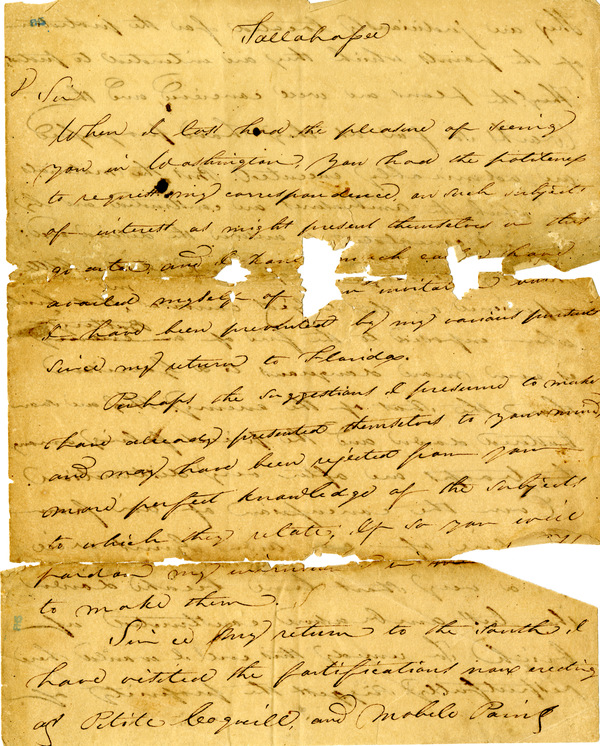 Tallahassee
D Sir
When I last had the pleasure of seeing
you in Washington, You had the politeness
to request my correspondence on such subjects
of interest as might present themselves in this
quarter, and I
availed myself of
I have been prevented by my various pursuits
since my return to Florida.
Perhaps the suggestions I presumed to make
have already presented themselves to your mind
and may have been rejected from your
more perfect knowledge of the subjects
to which they relate; If so you will
pardon my
to make them.
Since my return to the South, I
have visited the fortifications now erecting
at Petite Coquill, and Mobile Point